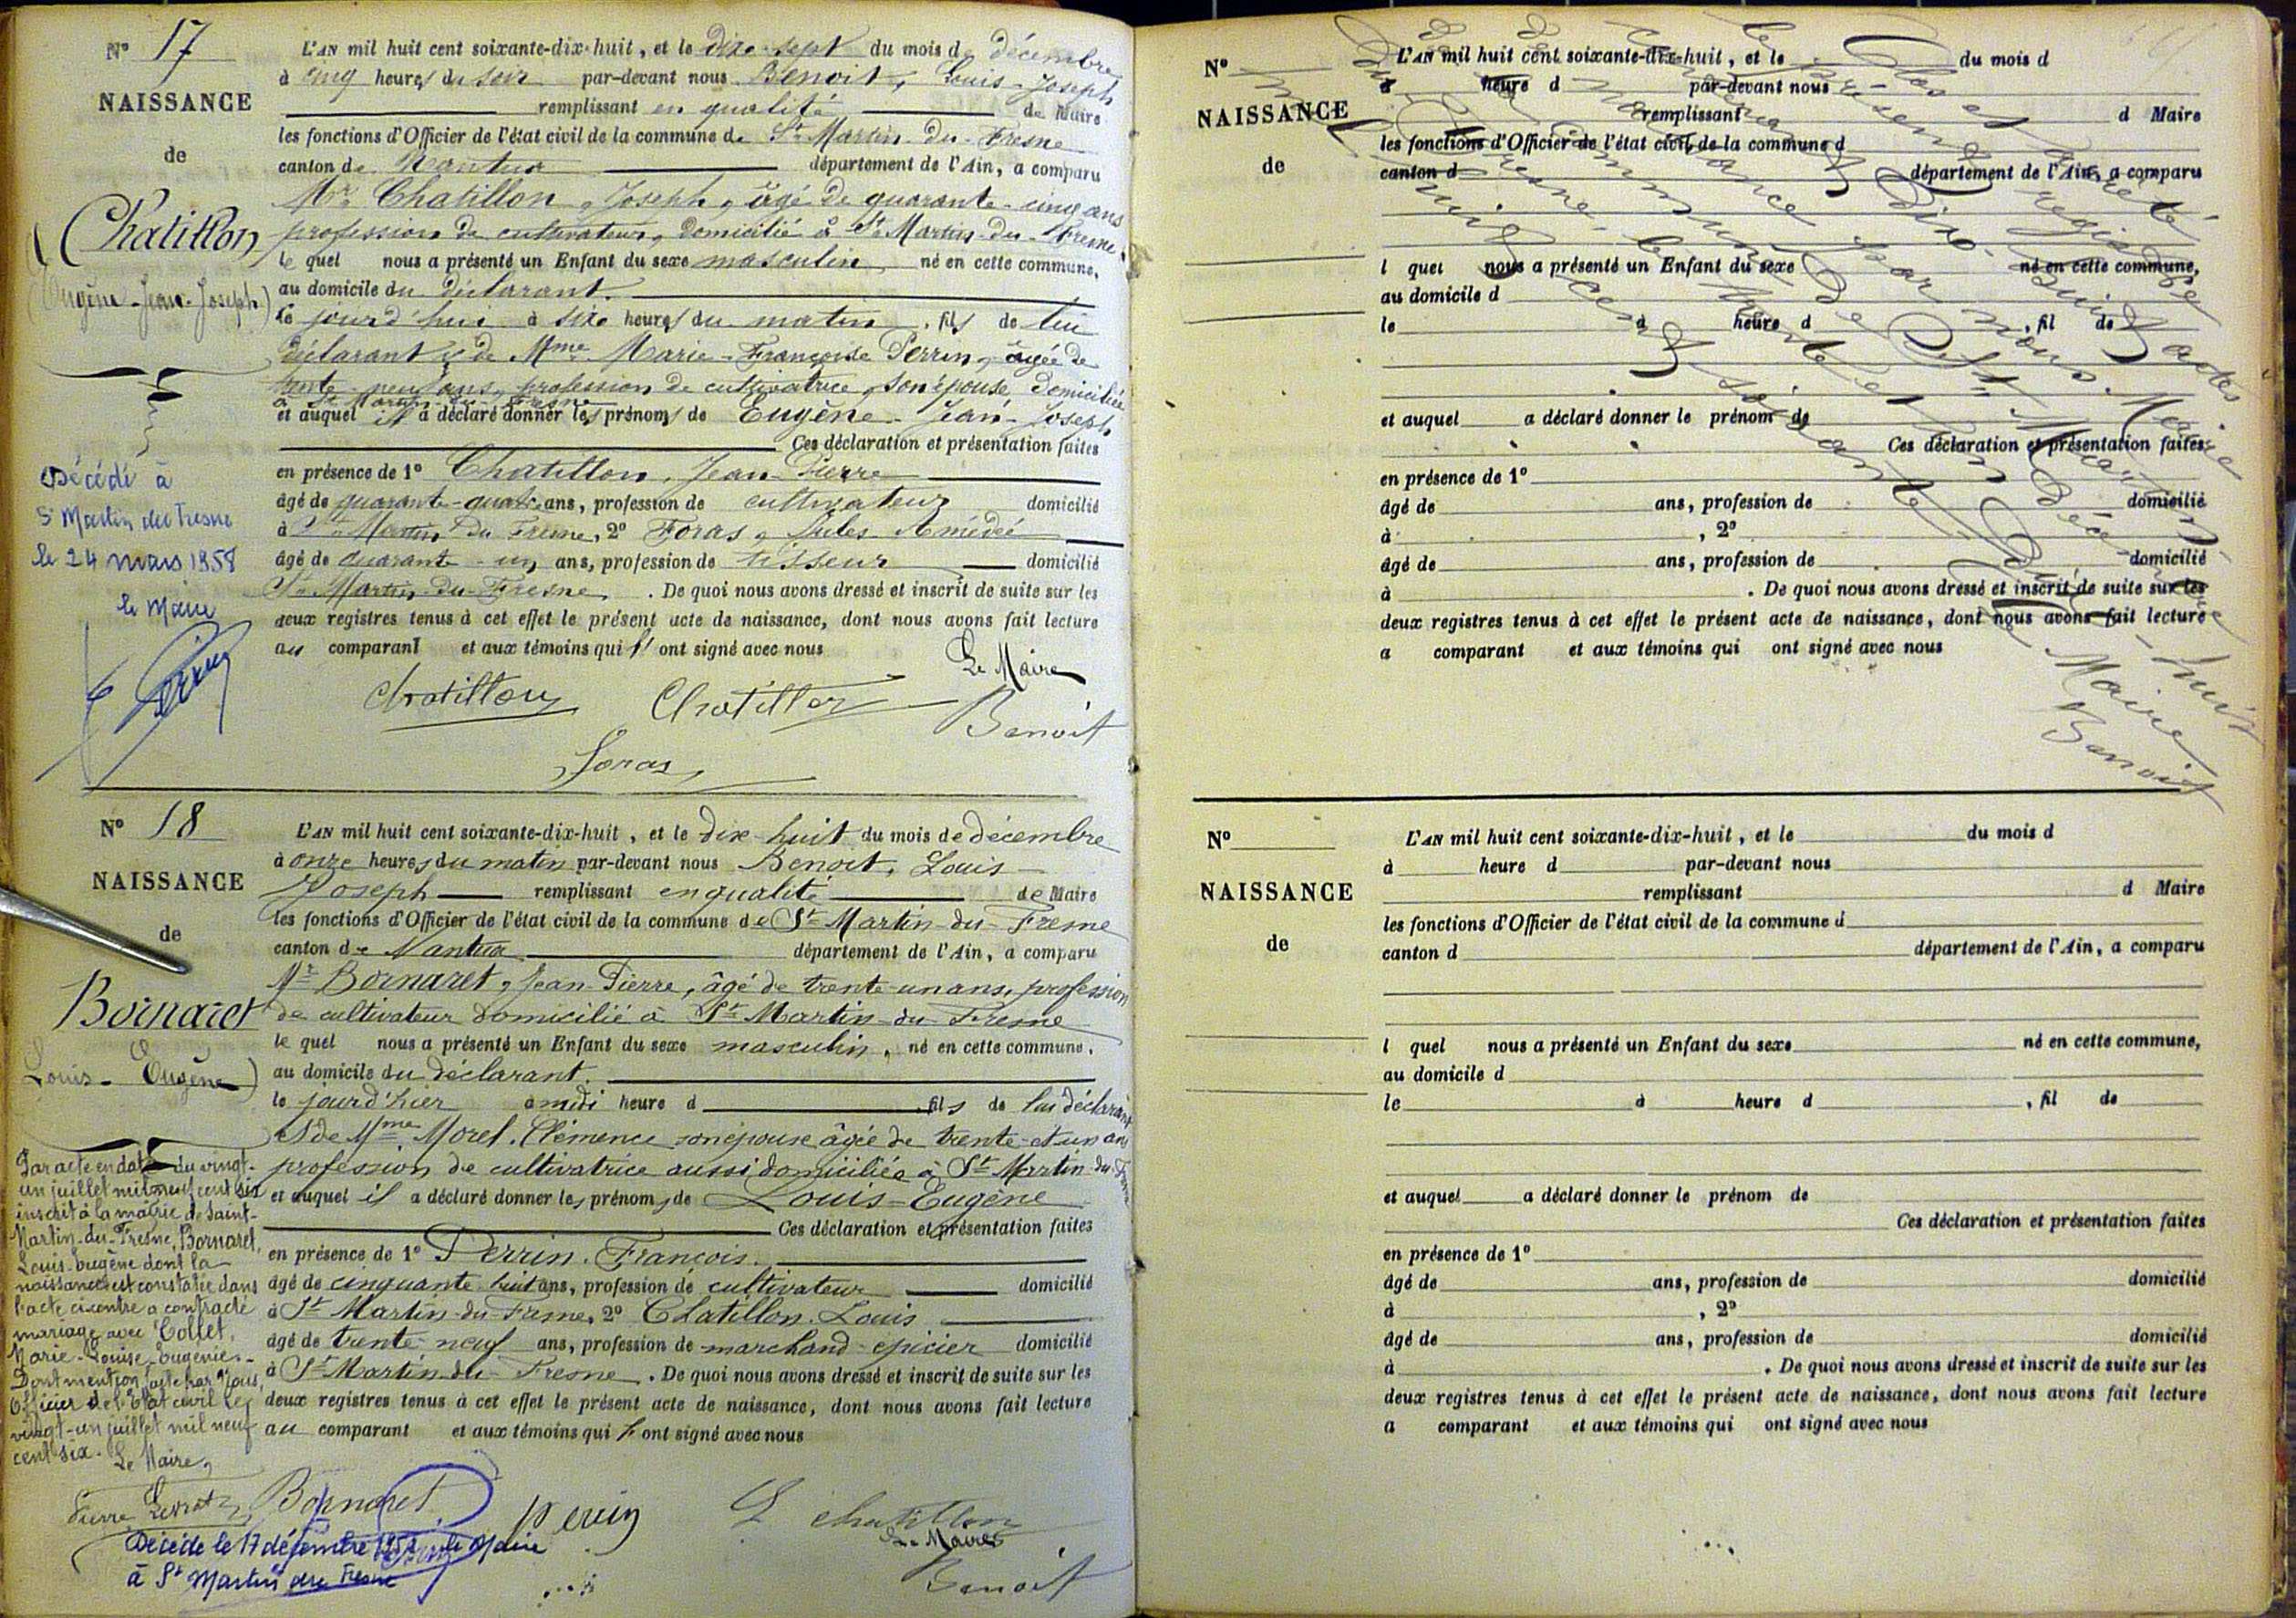 N° 17
NAISSANCE
de
Chatillon
(Eugène-Jean-Joseph)
Décédé à
St Martin du Fresne
le 24 mars 1958
le Maire
L'AN mil huit cent soixante-dix-huit, et le dix-sept du mois de décembre
à cinq heures du soir par-devant nous Benoit, Louis-Joseph
remplissant en qualité de Maire
les fonctions d'Officier de l'état civil de la commune de St Martin-du-Fresne
canton de Nantua département de l'Ain, a comparu
Mr Chatillon, Joseph, âgé de quarante-cinq ans
profession de cultivateur, domicilié à St Martin-du-Fresne,
le quel nous a présenté un Enfant du sexe masculin, né en cette commune,
au domicile du déclarant.
le jourd'hui à six heures du matin, fils de lui
déclarant & de Mme Marie-Françoise Perrin, âgée de
trente-neuf ans, profession de cultivatrice, son épouse, domiciliée
à St Martin-du-Fresne
et auquel il a déclaré donner les prénoms de Eugène-Jean-Joseph
Ces déclaration et présentation faites
en présence de 1° Chatillon, Jean-Pierre
âgé de quarante-quatre ans, profession de cultivateur domicilié
à St Martin du Fresne, 2° Foras, Jules Amédée
âgé de quarante-un ans, profession de tisseur domicilié
St Martin-du-Fresne. De quoi nous avons dressé et inscrit de suite sur les
deux registres tenus à cet effet le présent acte de naissance, dont nous avons fait lecture
au comparant et aux témoins qui l' ont signé avec nous
Le Maire
Chatillon Chatillon Benoit
Foras
N° 18
NAISSANCE
de
Bornaret
Louis-Eugène)
Par acte en date du vingt-
un juillet mil neuf cent six
inscrit à la mairie de Saint-
Martin-du-Fresne, Bornaret,
Louis-Eugène dont la
naissance est constatée dans
l'acte ci-contre a contracté
mariage avec Collet,
Marie-Louise-Eugénie.-
Dont mention faite par Nous,
Officier de l'Etat civil le
vingt-un juillet mil neuf
cent six. Le Maire,
L'AN mil huit cent soixante-dix-huit, et le dix-huit du mois de décembre
à onze heures du matin par-devant nous Benoit, Louis-
Joseph remplissant en qualité de Maire
les fonctions d'Officier de l'état civil de la commune de St Martin-du-Fresne
canton de Nantua département de l'Ain, a comparu
Mr Bornaret, Jean-Pierre, âgé de trente-un ans, profession
de cultivateur domicilié à St Martin-du-Fresne
le quel nous a présenté un Enfant du sexe masculin, né en cette commune,
au domicile du déclarant.
le jourd'hier à midi heure d fils de lui déclarant
et de Mme Morel, Clémence son épouse âgée de trente-et-un ans
profession de cultivatrice aussi domiciliée à St Martin-du-Fresne
et auquel il a déclaré donner les prénoms de Louis-Eugène
Ces déclaration et présentation faites
en présence de 1° Perrin, François.
âgé de cinquante huit ans, profession de cultivateur domicilié
à St Martin-du-Fresne, 2° Chatillon, Louis
âgé de trente-neuf ans, profession de marchand-épicier domicilié
à St Martin-du-Fresne. De quoi nous avons dressé et inscrit de suite sur les
deux registres tenus à cet effet le présent acte de naissance, dont nous avons fait lecture
au comparant et aux témoins qui l' ont signé avec nous
Pierre Bornaret Perrin L Chatillon
Le Maire
Benoit
Décédé le 17 décembre le Maire
à St Martin du Fresne
N°
NAISSANCE
de
L'AN mil huit cent soixante-dix-huit, et le du mois d
à heure d par-devant nous
remplissant d Maire
les fonctions d'Officier de l'état civil de la commune d
canton d département de l'Ain, a comparu
l quel nous a présenté un Enfant du sexe né en cette commune,
au domicile d
le à heure d , fil de
et auquel a déclaré donner le prénom de
Ces déclaration et présentation faites
en présence de 1°
âgé de ans, profession de domicilié
à , 2°
âgé de ans, profession de domicilié
à . De quoi nous avons dressé et inscrit de suite sur les
deux registres tenus à cet effet le présent acte de naissance, dont nous avons fait lecture
a comparant et aux témoins qui ont signé avec nous
Clos et arrêté
le présent registre
de dix-huit actes
de naissance par nous, Maire
de la commune de St Martin-
du-Fresne, le trente et un Décembre
mil huit cent soixante-dix-huit
Le Maire
Benoit
N°
NAISSANCE
de
L'AN mil huit cent soixante-dix-huit, et le du mois d
à heure d par-devant nous
remplissant d Maire
les fonctions d'Officier de l'état civil de la commune d
canton d département de l'Ain, a comparu
l quel nous a présenté un Enfant du sexe né en cette commune,
au domicile d
le à heure d , fil de
et auquel a déclaré donner le prénom de
Ces déclaration et présentation faites
en présence de 1°
âgé de ans, profession de domicilié
à , 2°
âgé de ans, profession de domicilié
à . De quoi nous avons dressé et inscrit de suite sur les
deux registres tenus à cet effet le présent acte de naissance, dont nous avons fait lecture
a comparant et aux témoins qui ont signé avec nous